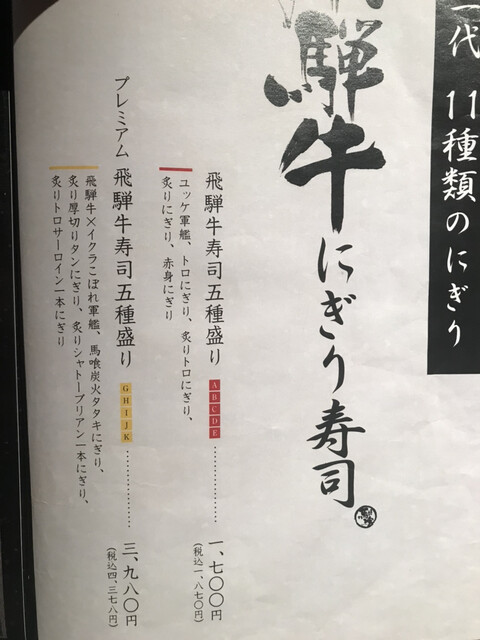 代 11種類のにぎり
騨牛にぎり寿司
飛騨牛寿司五種盛り ABCDE ……………… 一、七〇〇円
(税込一、八七〇円)
ユッケ軍艦、トロにぎり、炙りトロにぎり、
炙りにぎり、赤身にぎり
プレミアム 飛騨牛寿司五種盛り GHIJK ……………… 三、九八〇円
(税込四、三七八円)
飛騨牛×イクラこぼれ軍艦、馬喰炭火タタキにぎり、
炙り厚切りタンにぎり、炙りシャトーブリアン一本にぎり、
炙りトロサーロイン一本にぎり